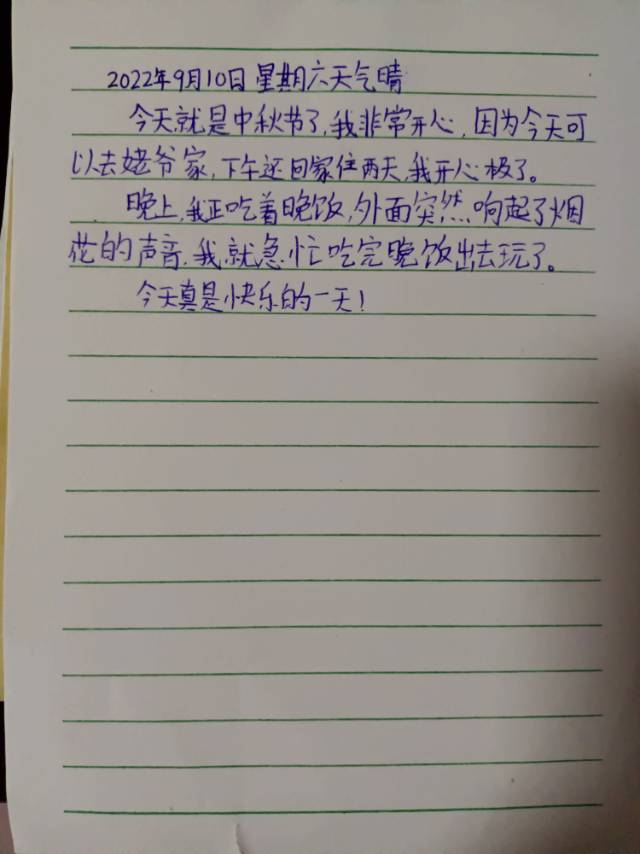 2022年9月10日 星期六天气晴
今天就是中秋节了,我非常开心,因为今天可
以去姥爷家,下午还回家住两天,我开心极了。
晚上,我正吃着晚饭,外面突然响起了烟
花的声音,我就急忙吃完晚饭出去玩了。
今天真是快乐的一天!